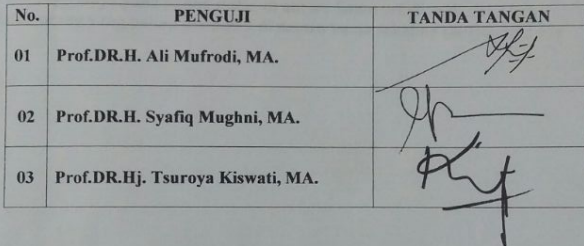 No. PENGUJI TANDA TANGAN
01 Prof.DR.H. Ali Mufrodi, MA.
02 Prof.DR.H. Syafiq Mughni, MA.
03 Prof.DR.Hj. Tsuroya Kiswati, MA.